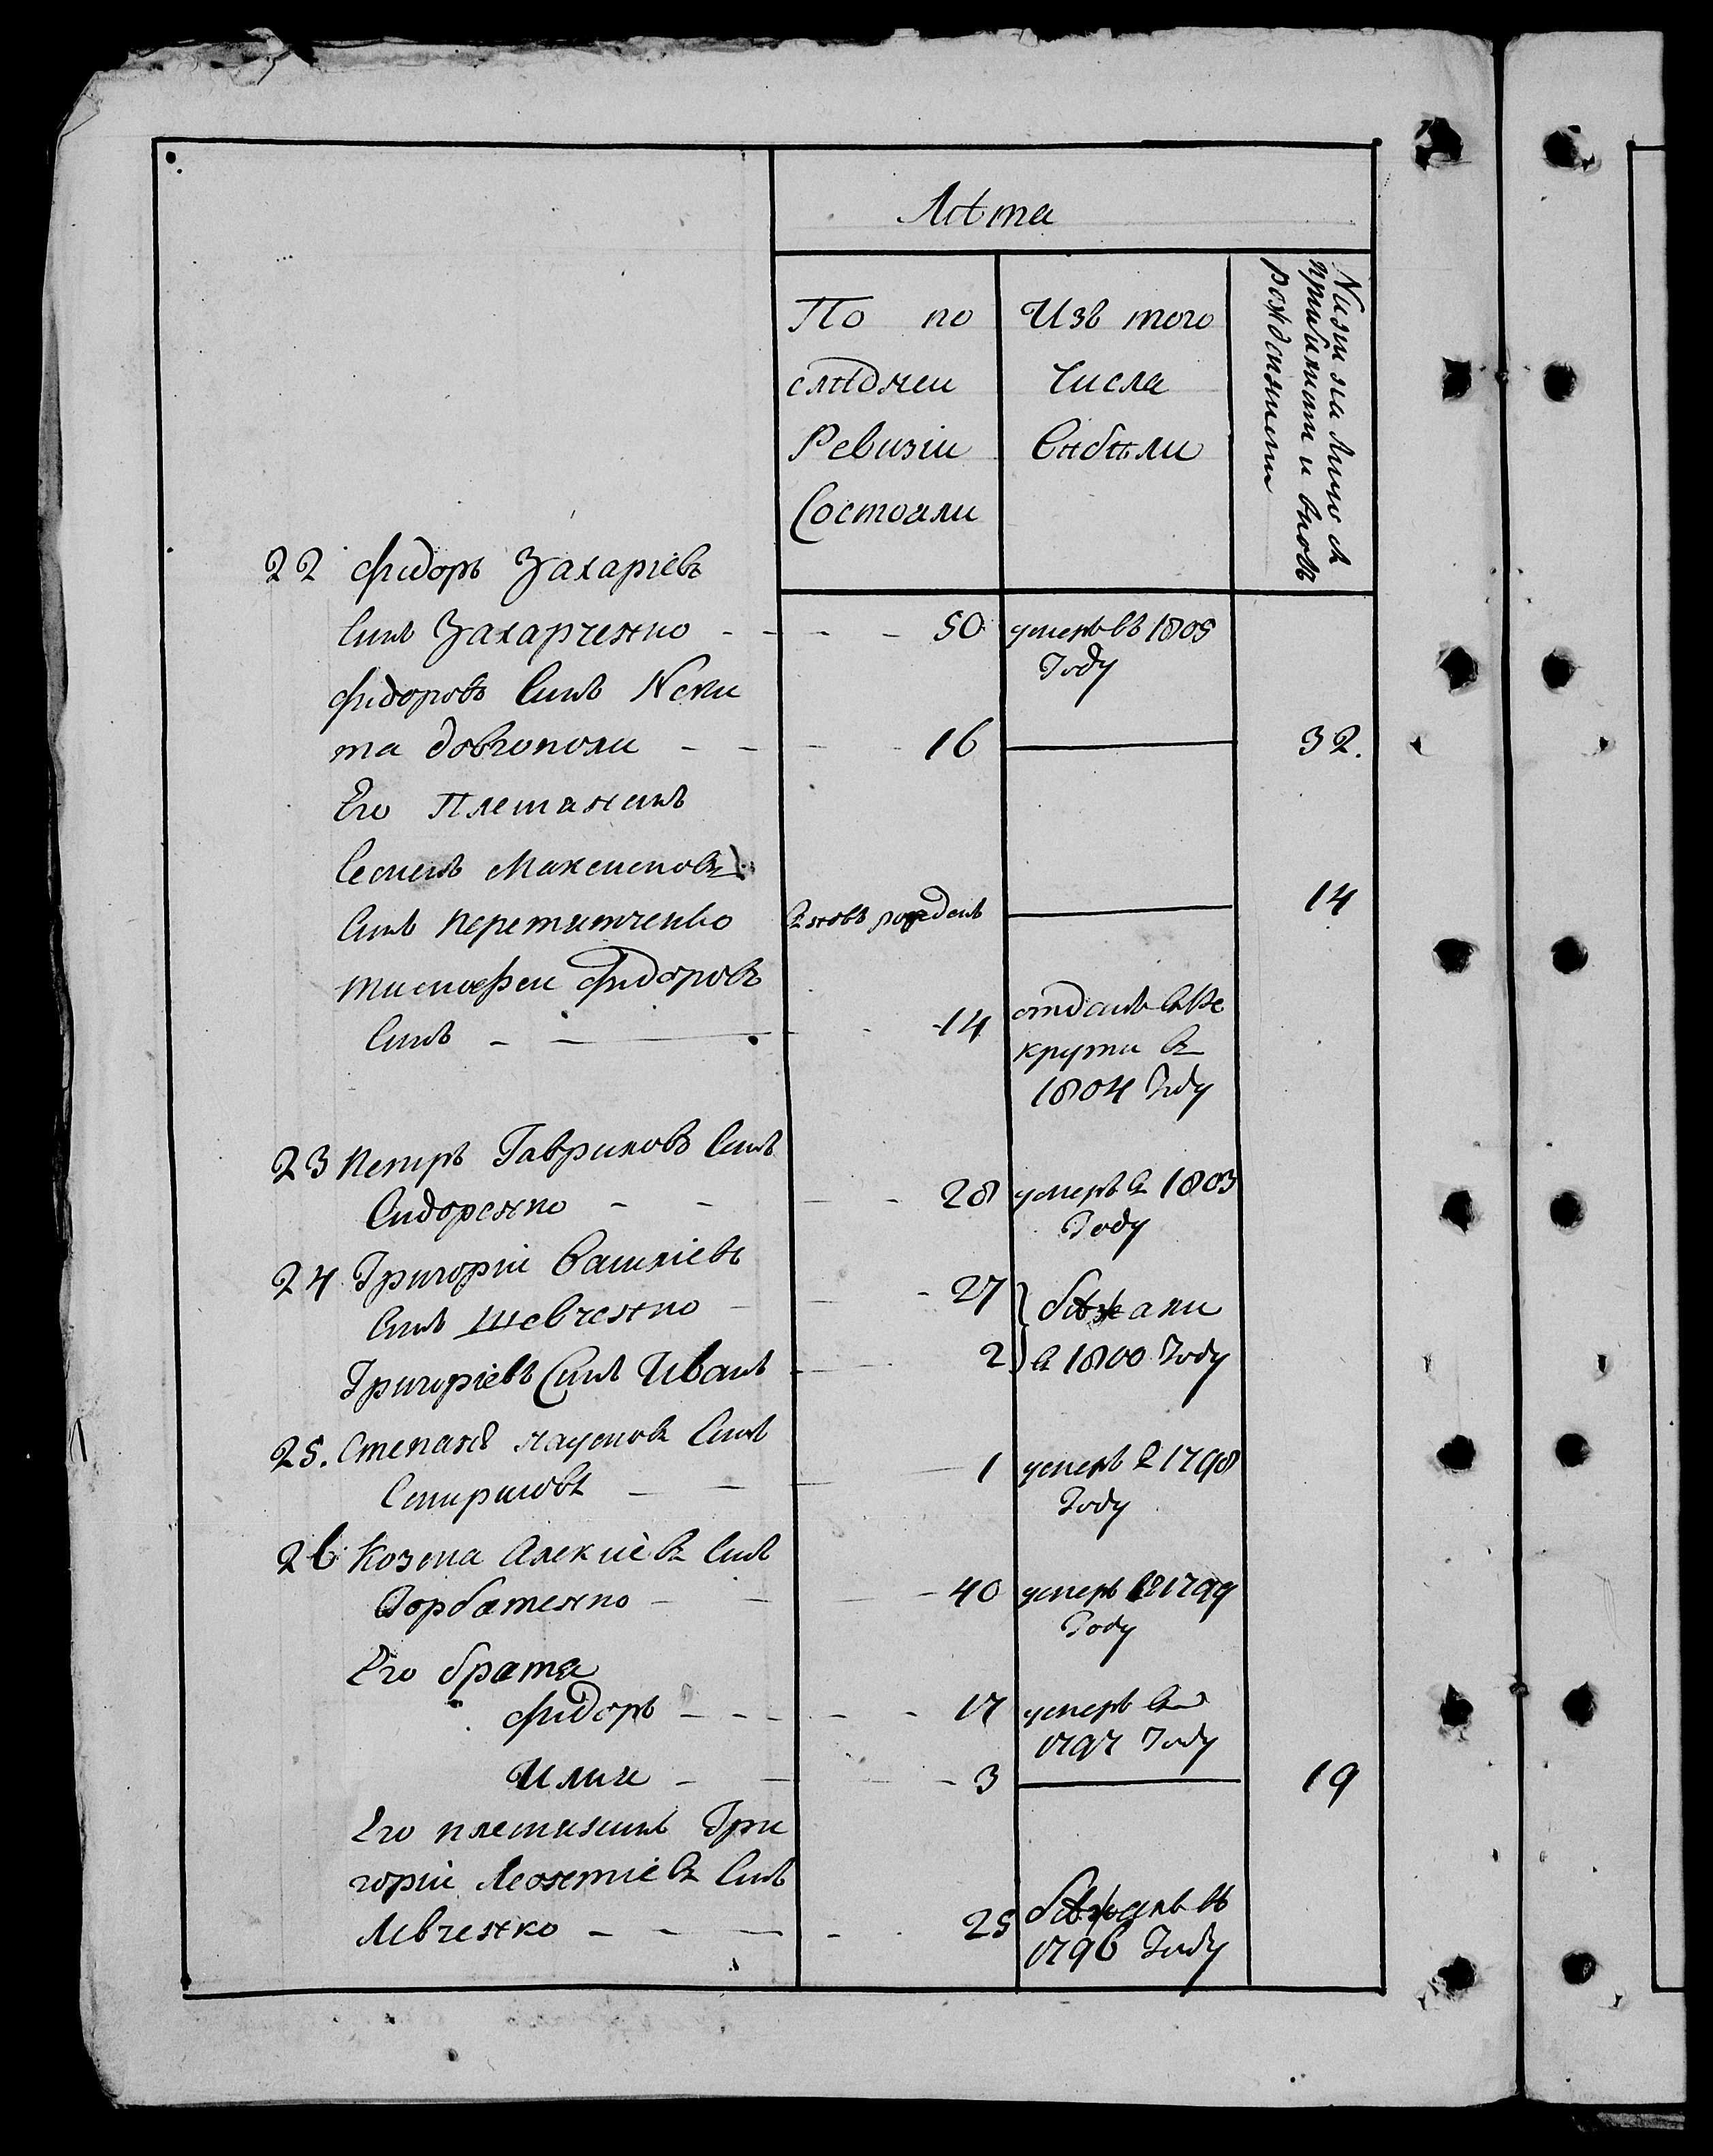 Лѣта
По по
слѣднеи
Ревизіи
Состояли
Изъ того
Числа
Выбыли
Нинѣ на лицо съ
прибилими и вновь
рожденними
22 Фидоръ Захаріевъ
Синъ Захарченко - - - - 50 умеръ въ 1805
Году
Фидоровъ Синъ Неки
та довгополи - - - - 16 32.
Его Племѣнникъ
Семенъ Максимовъ
Синъ Перетятченко Вновь рожденъ 14
тимофеи Фидоровъ
Синъ - - - 14 отданъ въ Ре
крути в
1804 Году
23 Петръ Гавриловъ Синъ
Сидоренко - - - - 28 умеръ в 1803
Году
24 Григорій Василіевъ
Синъ Шевченко - - - 27 бѣжали
Григоріевъ Синъ Иванъ - - 2 в 1800 Году
25. Степанъ наумовъ Синъ
- - - 1 умеръ в 1798
Году
26 Козма Алексіевъ Синъ
Горбатенко - - - - 40 умеръ в 1799
Году
Его братя
Фидоръ - - - - - 17 умеръ в
1797 Году
Илия - - - - 3 19
Его племянникъ Гри
горій Леонтіевъ Синъ
Левченко - - - - 25 бѣжалъ въ
1796 Году